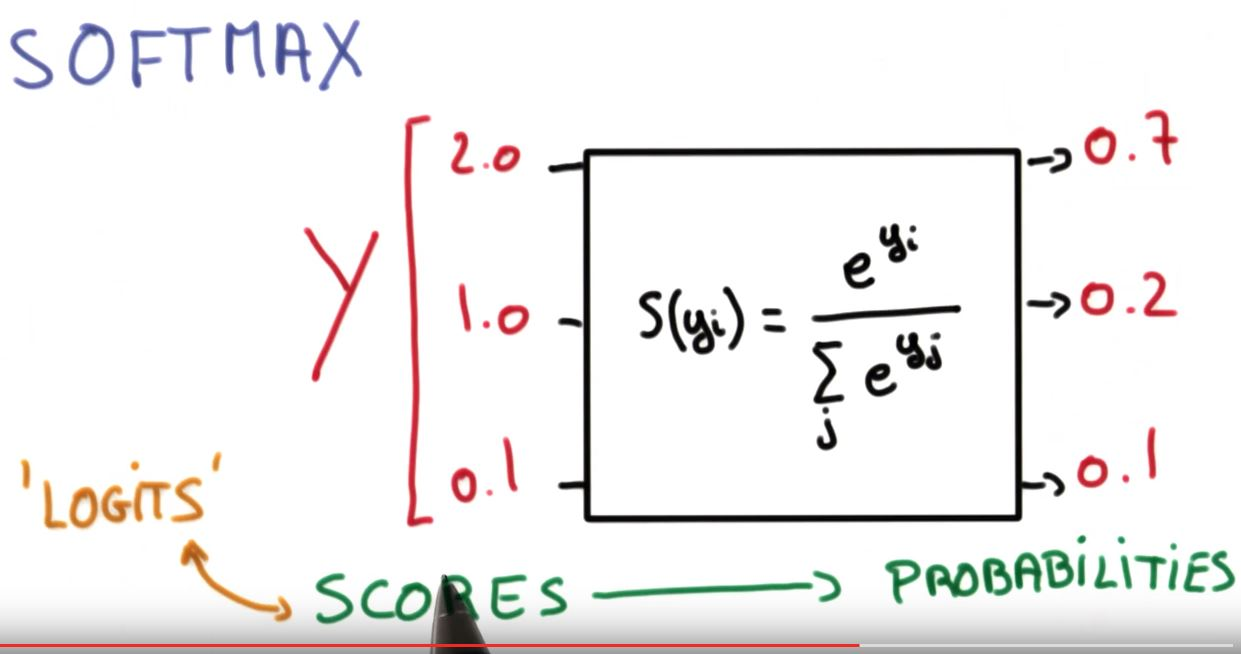 SOFTMAX
Y
2.0
1.0
0.1
S(yi) = e^yi / Σj e^yj
0.7
0.2
0.1
'LOGITS'
SCORES → PROBABILITIES